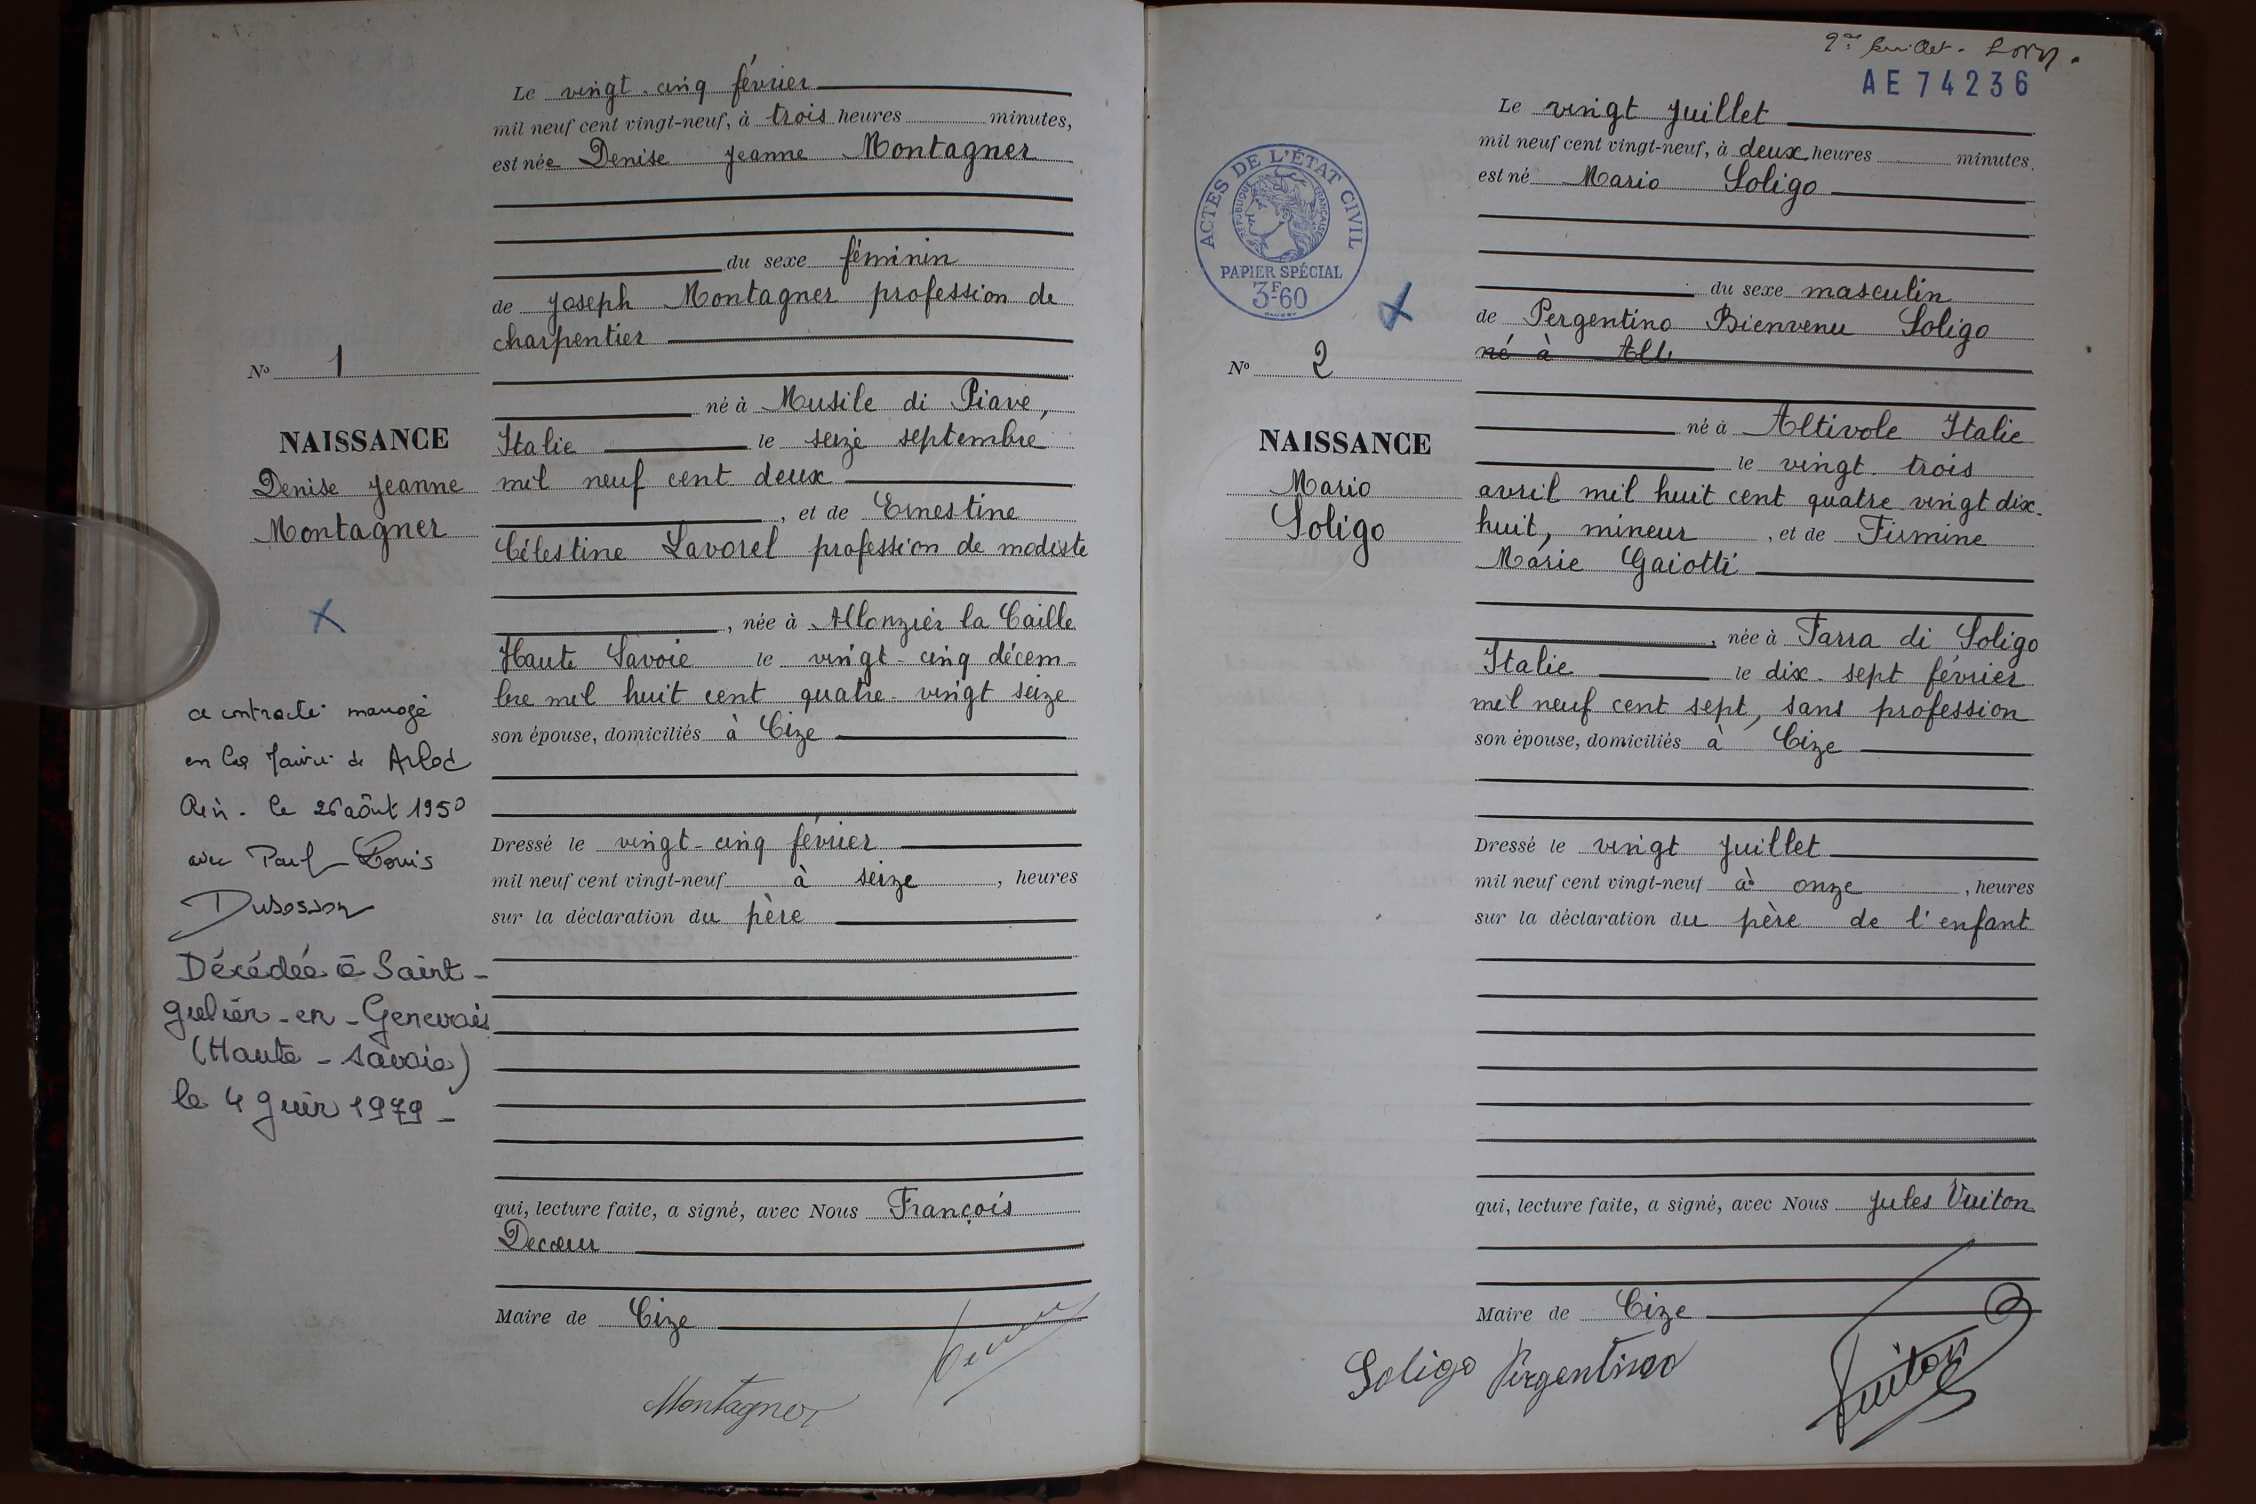 Le vingt-cinq février
mil neuf cent vingt-neuf, à trois heures minutes,
est née Denise Jeanne Montagner
du sexe féminin
de Joseph Montagner profession de
charpentier
né à Musile di Piave,
Italie le seize septembre
mil neuf cent deux
, et de Ernestine
Célestine Lavorel profession de modiste
, née à Allonzier la Caille
Haute Savoie le vingt-cinq décem-
bre mil huit cent quatre-vingt seize
son épouse, domiciliés à Cize
Dressé le vingt-cinq février
mil neuf cent vingt-neuf à seize , heures
sur la déclaration du père
qui, lecture faite, a signé, avec Nous François
Decœur
Maire de Cize
Montagner
No 1
NAISSANCE
Denise Jeanne
Montagner
a contracté mariage
en la Mairie de Arlod
Ain. le 26 août 1950
avec Paul Louis
Dubosson
Décédée à Saint-
Julien-en-Genevois
(Haute-Savoie)
le 4 Juin 1979-
AE 74236
ACTES DE L'ÉTAT CIVIL
RÉPUBLIQUE FRANÇAISE
PAPIER SPÉCIAL
3F60
No 2
NAISSANCE
Mario
Soligo
Le vingt Juillet
mil neuf cent vingt-neuf, à deux heures minutes.
est né Mario Soligo
du sexe masculin
de Pergentino Bienvenu Soligo
né à Alt
né à Altivole Italie
le vingt-trois
avril mil huit cent quatre vingt dix-
huit, mineur , et de Firmine
Marie Gaiotti
, née à Farra di Soligo
Italie le dix-sept février
mil neuf cent sept, sans profession
son épouse, domiciliés à Cize
Dressé le vingt Juillet
mil neuf cent vingt-neuf à onze , heures
sur la déclaration du père de l'enfant
qui, lecture faite, a signé, avec Nous Jules Vuiton
Maire de Cize
Soligo Pergentino
Vuiton